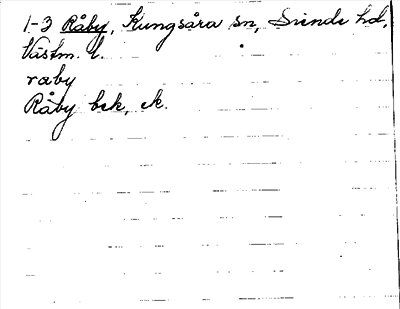 1-3 Råby, Kungsåra sn, Siende hd,
Västm. l.
raby
Råby bek, ek.